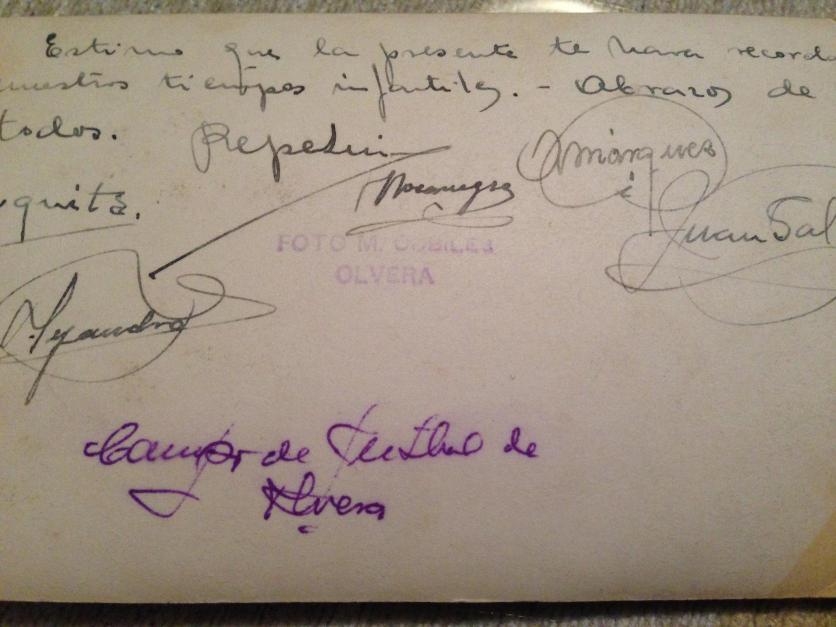 Estimo que la presente te hara recorda
nuestros tiempos infantiles. - Abrazos de
todos.
Repetin
Marquez
quita.
Bocanegra
Juan Sal
FOTO M. CUBILES
OLVERA
Alejandro
Campo de Futbol de
Olvera